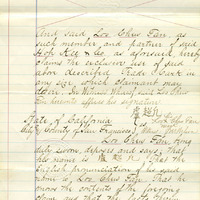 And said Loo Chew Fan, as
such member and partner of said
Hop Kee & Co. as aforesaid, hereby
claims the exclusive use of said
above described Trade Mark in
any size which claimant may
desire. In Witness Whereof said Loo Chew
Fan hereunto affixes his signature.
盧超
State of California
City & County of San Francisco
Loo Chew Fan, being
duly sworn, deposes and says; that
his name is 盧超 that the
English pronunciation of his said
name is, Loo Chew Fan. That he
knows the contents of the foregoing
claim and that the facts therein